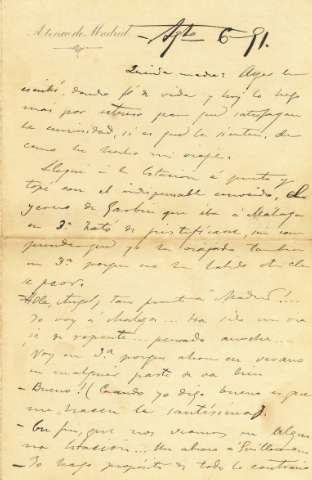 Ateneo de Madrid
Agto 6-91.
Querida madre: Ayer le
escribí, dando fé de vida y hoy lo hago
mas por extenso para que satisfagan
la curiosidad, si es que la sienten, de
como he hecho mi viaje.
Llegué á la estación á punto y
topé con el indispensable conocido, el
yerno de Garbin que iba á Málaga
en 3ª. Trató de justificarse, sin com-
prender que yo he viajado tambien
en 3ª porque no ha habido otra clase
peor.
— Hola, Angel, tan pronto á Madrid!...
Yo voy á Malaga... Ha sido un via-
je de repente... pensado anoche...
Voy en 3ª porque ahora en verano
en cualquier parte se va bien
— Bueno! (Cuando yo digo bueno es que
me hacen la santísima).
— En fin, que nos veamos en alguna
estación... Un abrazo á Guillermo...
— Yo hago propósito de todo lo contrario